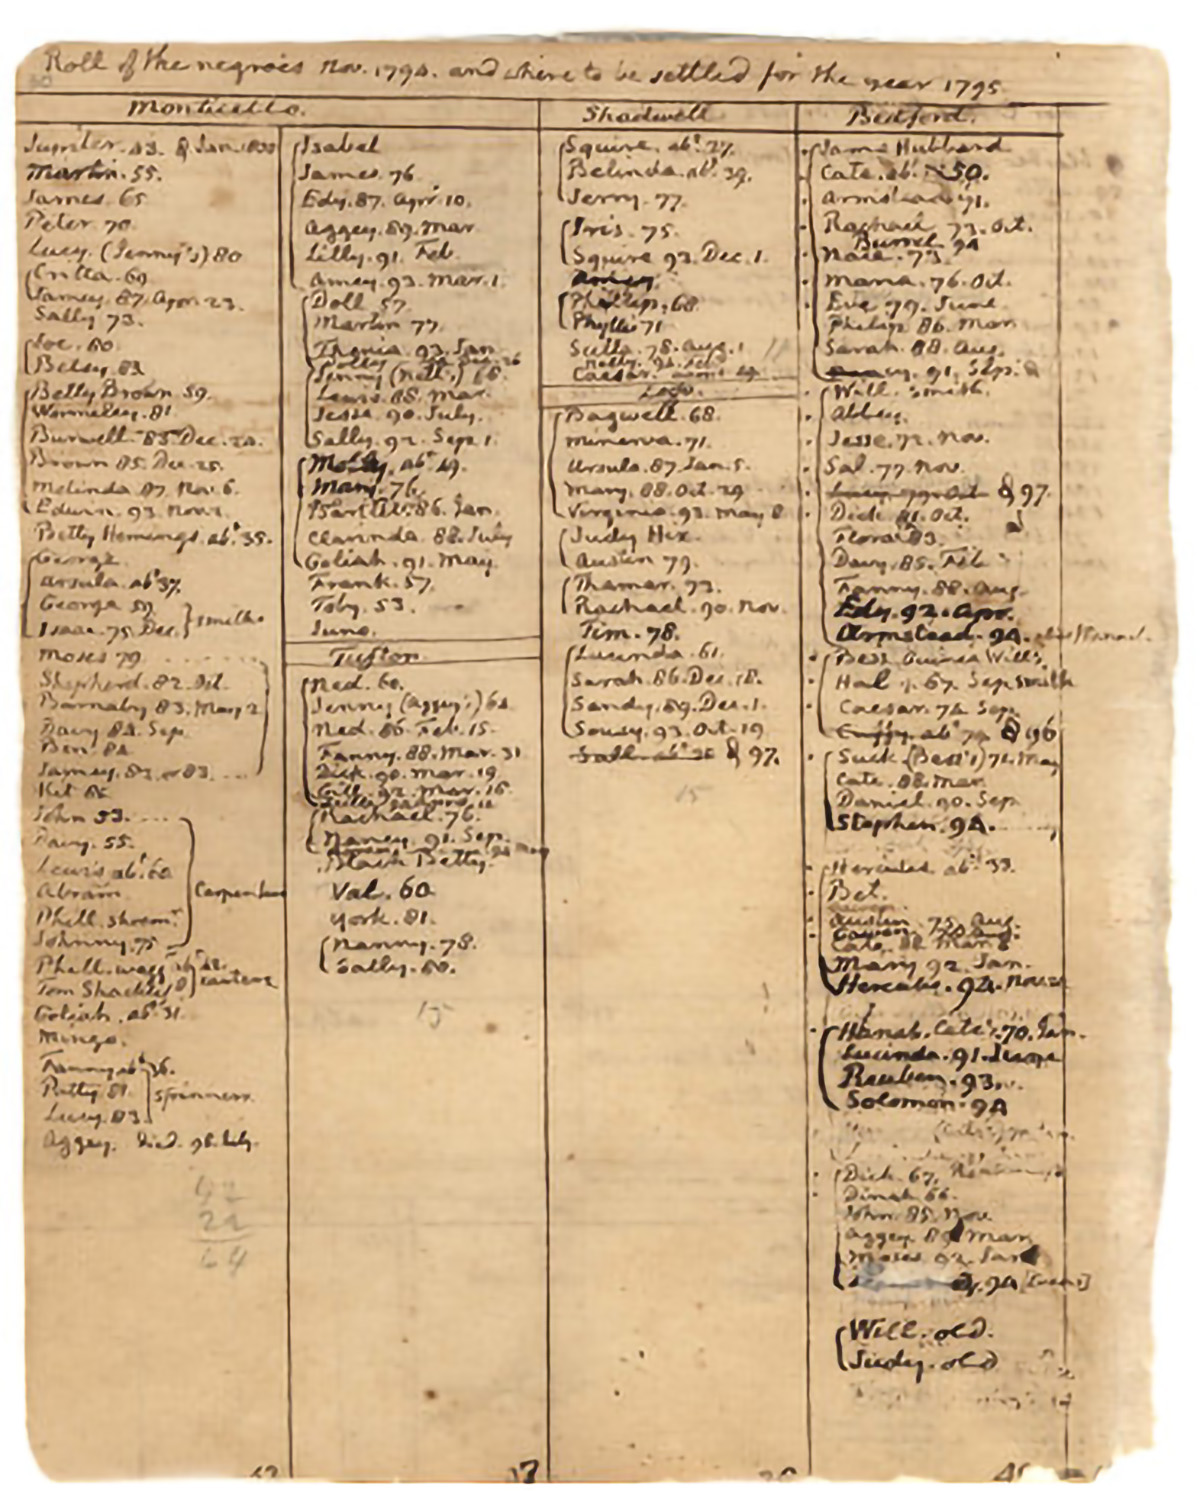 Roll of the negroes Nov. 1794. and where to be settled for the year 1795
Monticello.
Jupiter. 43. Jan. 1800
Martin. 55.
James. 65
Peter. 70.
Lucy. (Jenny's) 80
Critta. 69
Jamey. 87. Apr. 23.
Sally 73.
Joe. 80
Betsy. 83
Betty Brown. 59.
Wormeley. 81
Burwell. 83. Dec. 24.
Brown 85. Dec. 25.
Melinda 87. Nov. 6.
Edwin. 93. Nov. 1.
Betty Hemings. ab.t 35.
George.
Ursula. ab.t 37.
George 59
Isaac. 75. Dec.
smiths
Moses 79
Shepherd. 82. Oct.
Barnaby 83. May 2
Davy 84. Sep.
Ben. 84
Jamey. 82. or 83.
Kit 86
John 53.
Davy. 55.
Lewis ab.t 60
Abram.
Phill. shoem.r
Johnny. 75
Carpenters
Phill. wagg.r ab.t
Tom Shacklef.d
carters
Goliah. ab.t 31.
Mingo.
Fanny ab.t 36.
Patty 81.
Lucy. 83.
spinners
Aggey. died. 98.
42
22
64
Isabel
James. 76
Edy. 87. Apr. 10.
Aggey. 89. Mar
Lilly. 91. Feb
Amey. 93. Mar. 1.
Doll 57
Martin 77
Thenia. 93. Jan
Jenny (Ned's) 68.
Lewis. 88. Mar.
Jesse. 90. July.
Sally. 92. Sep. 1.
Molly. ab.t 49.
Mary. 76
Bartlet. 86. Jan.
Clarinda. 88. July
Goliah. 91. May
Frank. 57.
Toby. 53.
Juno.
Tufton.
Ned. 60.
Jenny (Aggy's) 64
Ned. 86. Feb. 15.
Fanny. 88. Mar. 31
Dick. 90. Mar. 19
Gill. 92. Mar. 16.
Rachael. 76.
Nancy. 91. Sep.
Black Betty.
Val. 60
York. 81.
Nanny. 78.
Sally. 80.
15
Shadwell
Squire. ab.t 27.
Belinda. ab.t 39.
Jerry. 77.
Iris. 75.
Squire 93. Dec. 1.
Phillip. 68.
Phyllis 71
Scilla. 78. Aug. 1
Caesar.
Lego.
Bagwell. 68.
Minerva. 71.
Ursula. 87. Jan. 5.
Mary. 88. Oct. 29
Virginia. 93. May 8
Judy Hix.
Austin 79.
Thamar. 73.
Rachael. 90. Nov.
Tim. 78.
Lucinda. 61.
Sarah. 86. Dec. 18.
Sandy. 89. Dec. 1.
Sousy. 93. Oct. 19
97.
15
Bedford.
Jame Hubbard
Cate. ab.t 50.
Armstead. 71.
Rachael. 73. Oct.
Burrel 94
Nace. 73.
Maria. 76. Oct.
Eve 79. June
Philip 86. Mar
Sarah. 88. Aug.
91. Sep.
Will. Smith.
Abbey.
Jesse. 72. Nov.
Sal. 77. Nov.
97.
Dick. 81. Oct.
Flora. 83.
Davy. 85. Feb
Fanny. 88. Aug.
Edy. 92. Apr.
Armstead. 94.
Bess. Guinea Will's.
Hal 67. Sep. smith
Caesar. 74. Sep
96
Suck (Bess's) 71. May
Cate. 88. Mar.
Daniel. 90. Sep
Stephen. 94.
Hercules ab.t 33.
Bet.
Austin. 75. Aug.
Gawen.
Cate. 88. Mar. 8
Mary 92. Jan.
Hercules. 94. Nov.
Hanah. Cate's. 70. Jan.
Lucinda. 91.
Reuben. 93.
Solomon. 94
Dick. 67.
Dinah 66.
John. 85. Nov.
Aggey. 89. Mar
Moses. 92. Jan
94
Will. old.
Judy. old